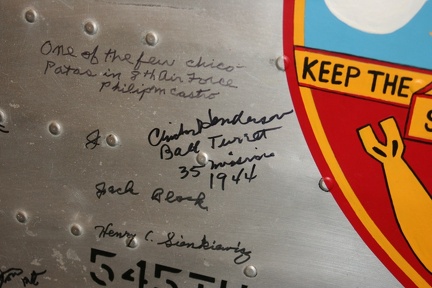 One of the few chico-
Patas in 8th Air Force
Philip M Castro
Henderson
Ball Turret
35 missions
1944
Jack Block
Henry C. Sienkiewicz
545TH
KEEP THE